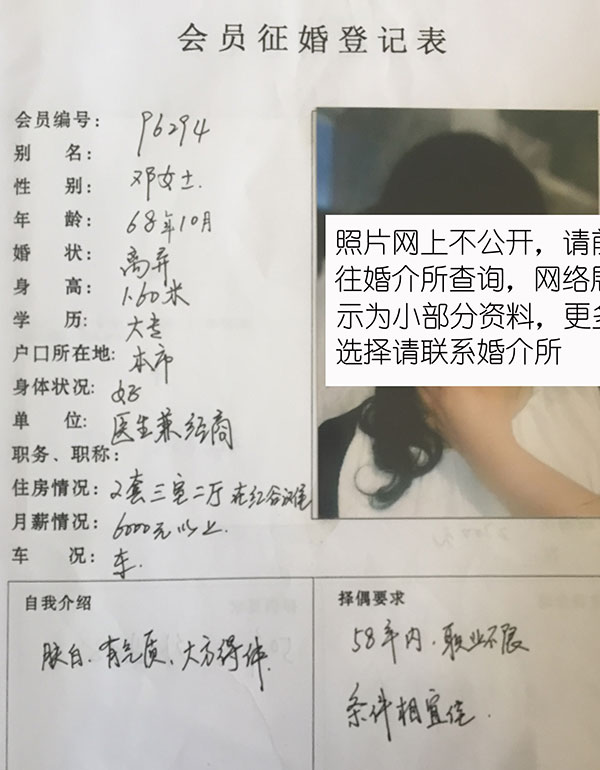 会员征婚登记表
会员编号: 96294
别 名:
性 别: 邓女士.
年 龄: 68年10月
婚 状: 离异
身 高: 1.60米
学 历: 大专
户口所在地: 本市
身体状况: 好
单 位: 医生兼经商
职务、职称:
住房情况: 2套三室二厅 在红谷滩
月薪情况: 6000元以上.
车 况: 车.
照片网上不公开，请前
往婚介所查询，网络展
示为小部分资料，更多
选择请联系婚介所
自我介绍
肤白、有气质、大方得体.
择偶要求
58年内.职业不限
条件相宜佳.